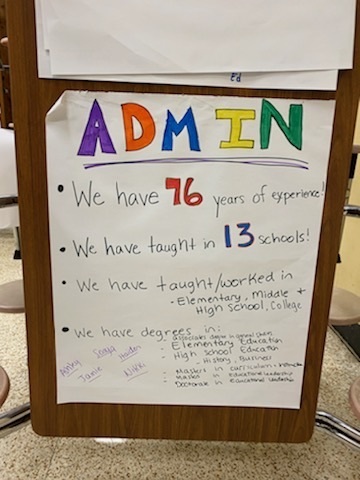 ADMIN
• We have 76 years of experience!
• We have taught in 13 schools!
• We have taught/worked in
- Elementary, Middle +
High School, College
• We have degrees in:
- Associates degree in general studies
- Elementary Education
- High school Education
- History, Business
- Masters in curriculum + instruction
- Masters in educational leadership
- Doctorate in educational leadership
Ashley Sonya Holden
Jamie Nikki